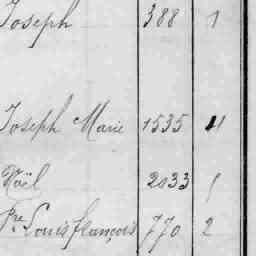 Joseph 388 1
Joseph Marie 1535 4
Noël 2033 1
Pre Louis françois 770 2